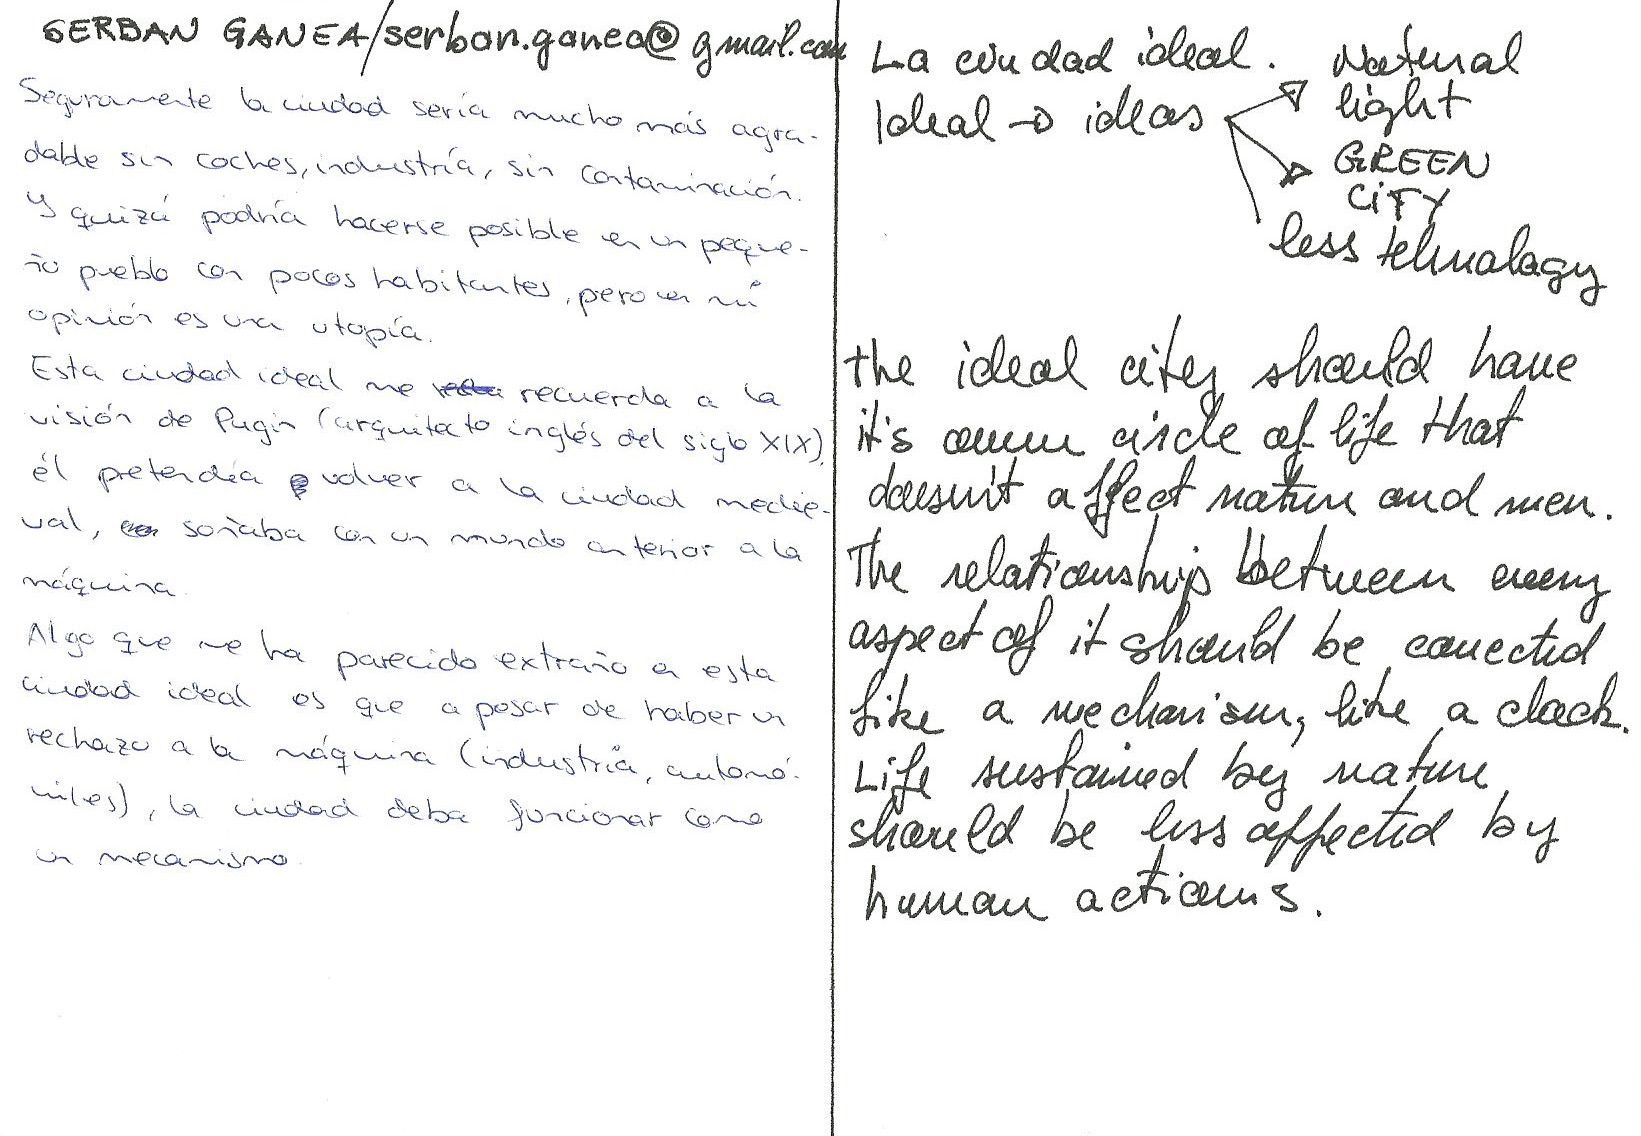 SERBAN GANEA/serban.ganea@gmail.com
Seguramente la ciudad sería mucho más agra-
dable sin coches, industría, sin contaminación.
Y quizá podría hacerse posible en un peque-
ño pueblo con pocos habitantes, pero en mi
opinión es una utopía.
Esta ciudad ideal me recuerda a la
visión de Pugin (arquitecto inglés del siglo XIX),
él pretendía volver a la ciudad medie-
val, soñaba con un mundo anterior a la
máquina.
Algo que me ha parecido extraño en esta
ciudad ideal es que a pesar de haber un
rechazo a la máquina (industria, automó-
viles), la ciudad deba funcionar como
un mecanismo.
La ciudad ideal.
Ideal → ideas
Natural
light
GREEN
CITY
less tehnology
the ideal city should have
it's own circle of life that
doesn't affect nature and men.
The relationship between every
aspect of it should be conected
like a mechanism, like a clock.
Life sustained by nature
should be less affected by
human actions.